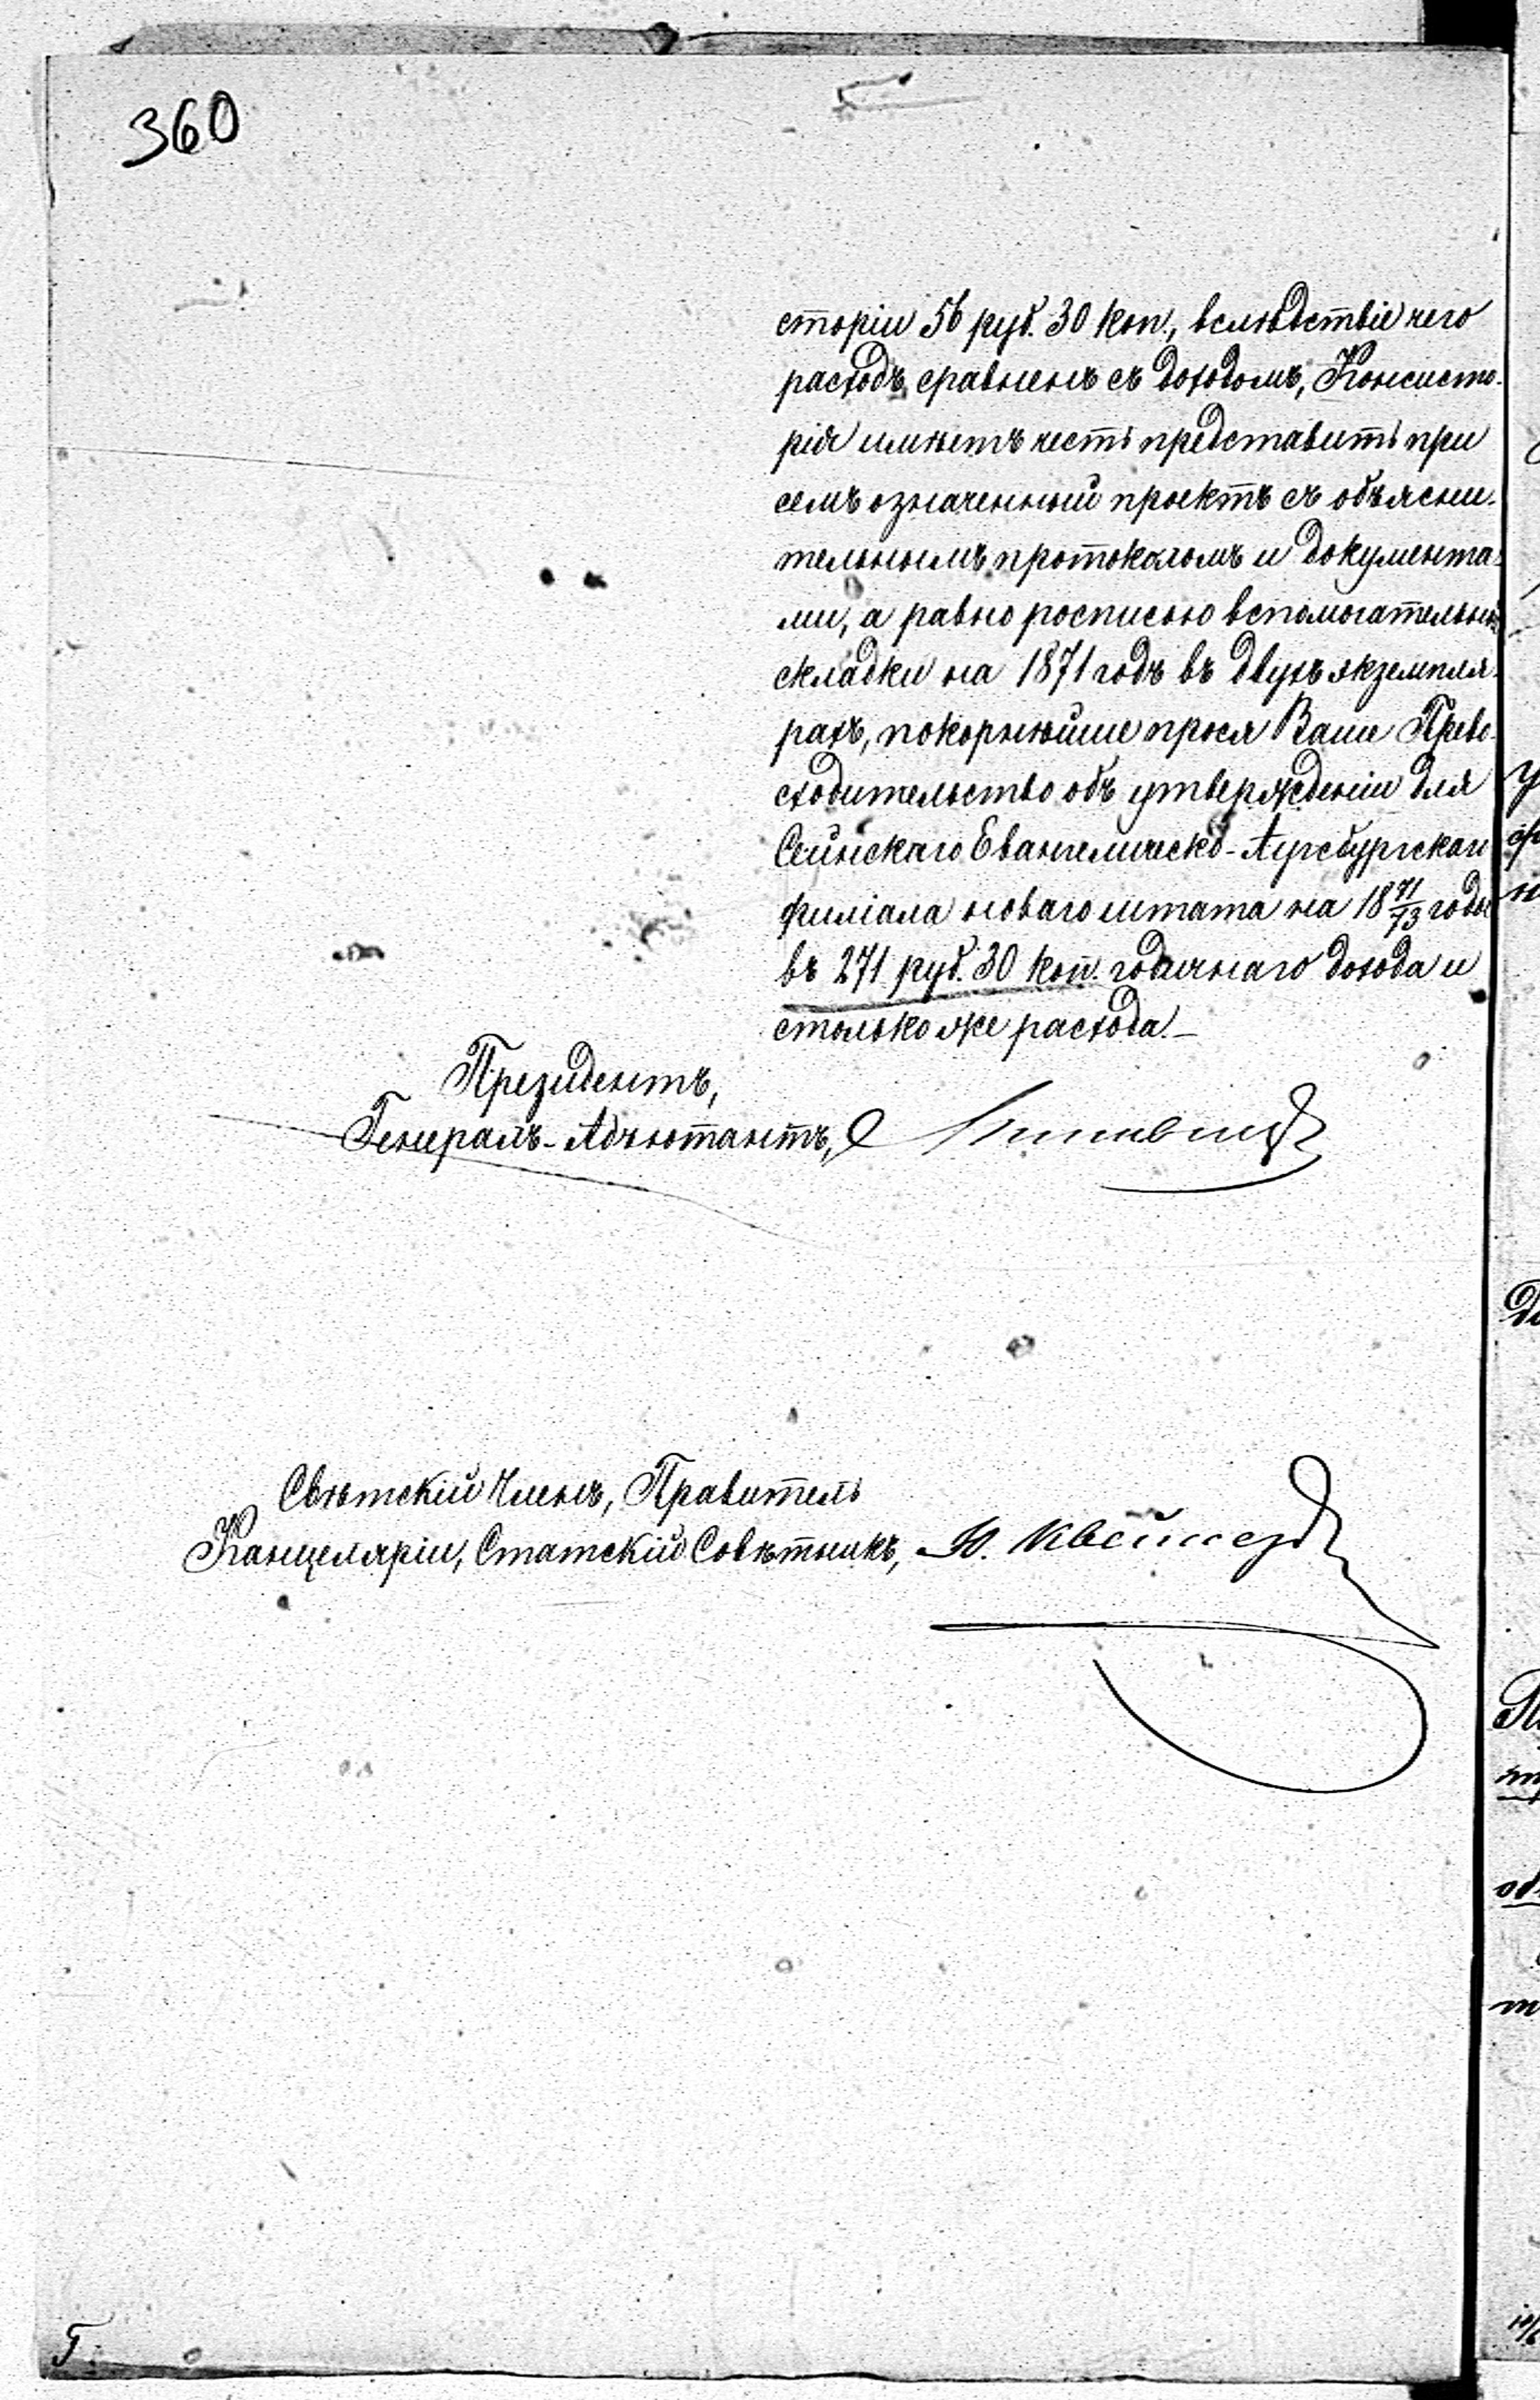 360
сторіи 56 руб. 30 коп., вслѣдствіе чего
расходъ сравненъ съ доходомъ, Консисто-
рія имѣетъ честь представить при
семъ означенный проектъ съ объясни-
тельнымъ протоколомъ и документа-
ми, а равно росписью вспомогательной
складки на 1871 годъ въ двухъ экземпля-
рахъ, покорнѣйше прося Ваше Прево-
сходительство объ утвержденіи для
Сейнскаго Евангелическо-Аугсбургскаго
филіала новаго штата на 18 71/73 годы
въ 271 руб. 30 коп. годичнаго дохода и
столько же расхода.—
Президентъ,
Генералъ-Адъютантъ,
Свѣтскій Членъ, Правитель
Канцеляріи, Статскій Совѣтникъ,